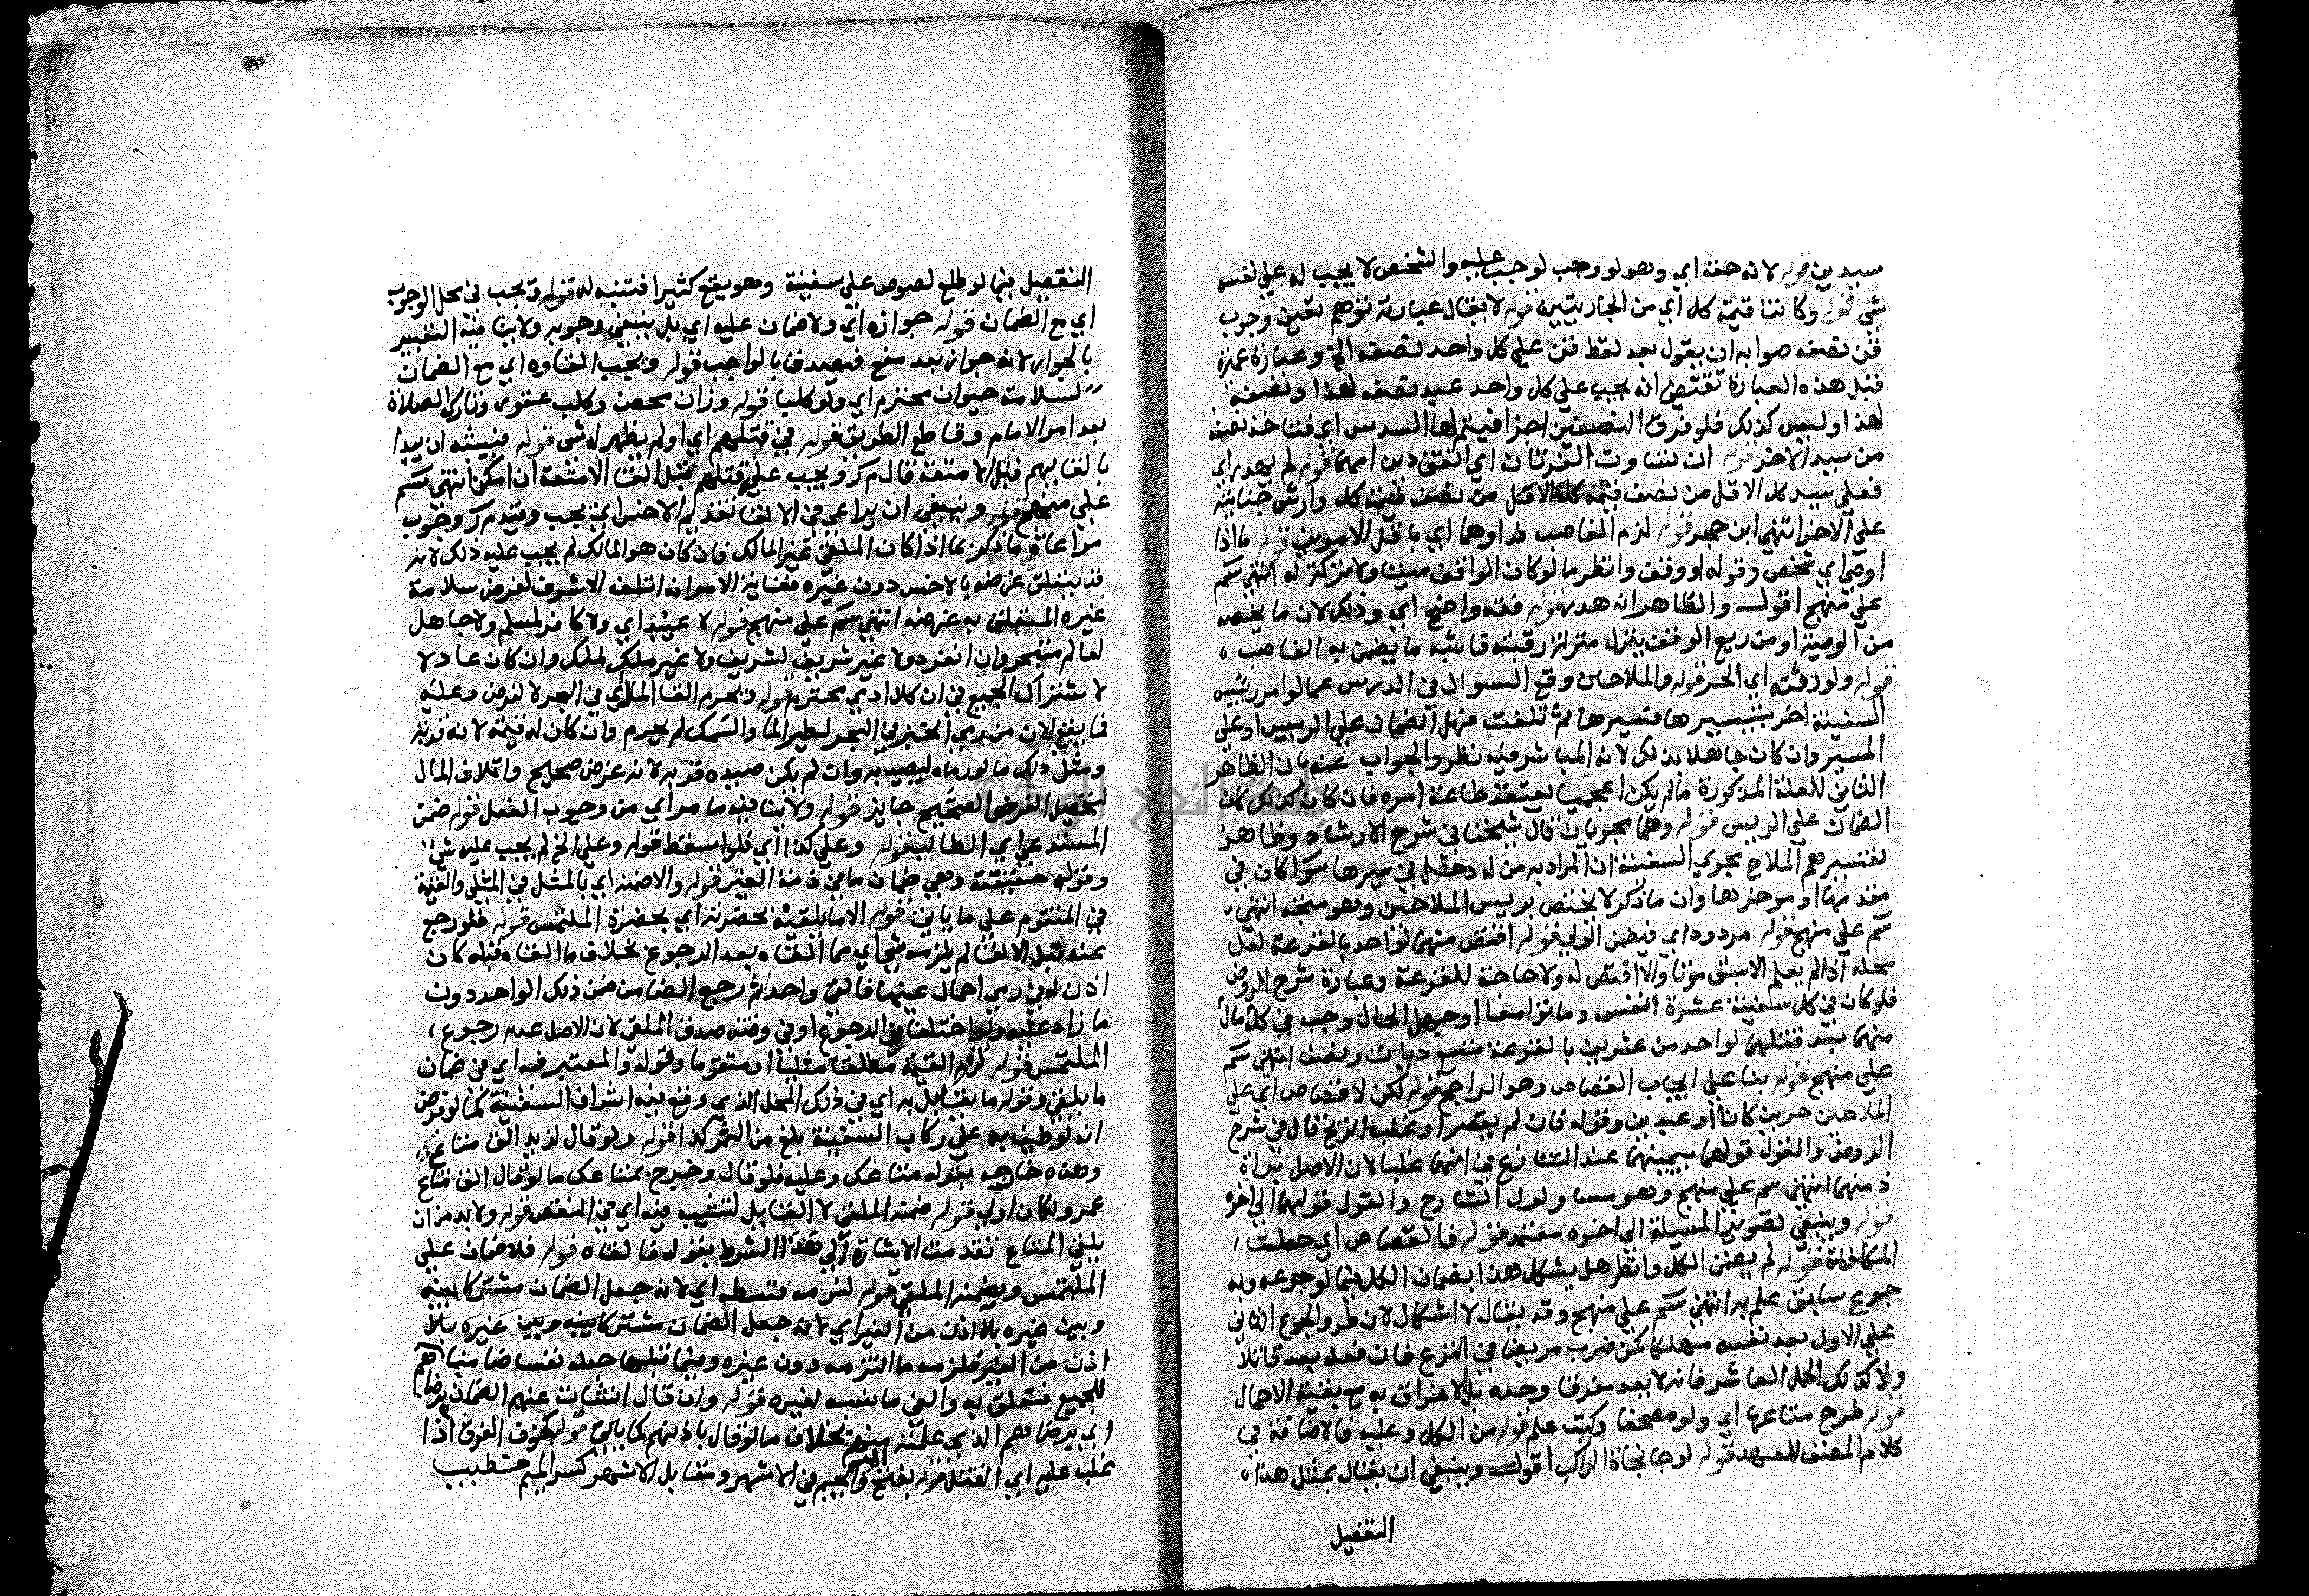 سيدين قوله لانه حقه اي وهو لو وجب لوجب عليه والشخص لا يجب له علي نفسه
شي قوله وكانتا قيمة كل اي من الجاريتين قوله لا يقال عبارته توهم تعين وجوب
قن نصفه صوابه ان يقول بعد لقط قن علي كل واحد نصفه الخ وعبارة عميرة
قبل هذه العبارة تقتضي انه يجب علي كل واحد عبد نصفه لهذا ونصفه
لهذا وليس كذلك فلو فرق النصفين اجزا فيتم لها السدس اي فتاخذ نصفه
من سيد الاخر قوله ان تساوت الغرتان اي اتفق دين امهما قوله لم يهدر اي
فعلي سيد كل الاقل من نصف قيمة كل الاقل من نصف قيمة كل وارش جنايته
علي الاخر انتهي ابن حجر قوله لزم الغاصب فداوهما اي باقل الامرين قوله ما اذا
اوصي اي شخص وقوله او وقف وانظر ما لو كان الواقف ميتا ولا تركة له انتهي سم
علي منهج اقول والظاهر انه هدر قوله فقته واضح اي وذلك لان ما يخصه
من الوصية او من ريع الوقف ينزل منزلة رقبته فاشبه ما يضمن به الغاصب
قوله ولو رقته اي الحر قوله والملاحان وقع السوال في الدرس عما لو امر رئيس
السفينة اخر بتسييرها فسيرها ثم تلفت فهل الضمان علي الرييس او علي
المسير وان كان جاهلا بذلك لانه المباشر فيه نظر والجواب عنه بان الظاهر
الثاني للعلة المذكورة ما لم يكن اعجميا يعتقد طاعة امره فان كان كذلك كان
الضمان علي الرييس قوله وهما مجريان قال شيخنا في شرح الارشاد وظاهر
تفسيرهم الملاح بمجري السفينة ان المراد به من له دخل في سيرها سوا كان في
مقدمها او موخرها وان ما ذكر لا يختص برييس الملاحين وهو متجه انتهي
سم علي منهج قوله مردوه اي فيضمن الولي قوله اقتص منهما لواحد بالقرعة لعل
محله اذا لم يعلم الاسبق موتا والا اقتص له ولا حاجة للقرعة وعبارة شرح الروض
فلو كان في كل سفينة عشرة انفس وماتوا معا او جهل الحال وجب في كل مال
منهما بعد قتلهما لواحد من عشرين بالقرعة تسع ديات ونصف انتهي سم
علي منهج قوله بنا علي ايجاب القصاص وهو الراجح قوله لكن لا قصاص اي علي
الملاحين حرين كانا او عبدين وقوله فان لم يقصرا وغلب الريح قال في شرح
الروض والقول قولهما بيمينهما عند التنازع في انهما غلبا لان الاصل براة
ذمتهما انتهي سم علي منهج وهو مساو لقول الشارح والقول قولهما الي اخره
قوله وينبغي تصوير المسيلة الي اخره معتمد قوله فالقصاص اي حيث
المكافاة قوله لم يضمن الكل وانظر هل يشكل هذا بضمان الكل فيما لو جوعه وبه
جوع سابق علم به انتهي سم علي منهج وقد يقال لا اشكال لان طرو الجوع الثاني
علي الاول يعد نفسه مهلكا كمن ضرب مريضا في النزع فان فعله يعد قاتلا
ولا كذلك الحمل العاشر فانه لا يعد مغرقا وحده بل الاغراق به مع بقية الاحمال
قوله طرح متاعها اي ولو مصحفا وكتب علم قوله من الكل وعليه فالاضافة في
كلام المصنف للعهد قوله لرجا نجاة الراكب اقول وينبغي ان يقال بمثل هذا
التفصيل
التفصيل فيما لو طلع لصوص علي سفينة وهو يقع كثيرا فتنبه له قوله ويجب في محل الوجوب
اي مع الضمان قوله جوازه اي ولا ضمان عليه اي بل ينبغي وجوبه ولا ينافيه التعبير
بالجواز لانه جواز بعد منع فيصدق بالواجب قوله ويجب القاوه اي مع الضمان
لسلامة حيوان محترم اي ولو كلبا قوله وزان محصن وكلب عقور وتارك الصلاة
بعد امر الامام وقاطع الطريق قوله في قتلهم اي او لم يظهر له شي قوله فينبغي ان يبدا
بالقايهم قبل الامتعة قال م ر ويجب علي قتلهم قبل القا الامتعة ان امكن انتهي سم
علي منهج قوله وينبغي ان يراعي في الالقا تقديم الاخس اي يجب وقيد م ر وجوب
مراعاة ما ذكر بما اذا كان الملقي غير المالك فان كان هو المالك لم يجب عليه ذلك لانه
قد يتعلق غرضه بالاخس دون غيره فغاية الامر انه اتلف الاشرف لغرض سلامة
غيره المتعلق به غرضه انتهي سم علي منهج قوله لا عبيد اي ولا كافر لمسلم ولا جاهل
لعالم متبحر وان انفرد ولا غير شريف لشريف ولا غير ملك لملك وان كان عادلا
لاشتراك الجميع في ان كلا ادمي محترم قوله ويحرم القا المال اي في البحر لا لغرض وعليه
فما يقع الان من رمي الخبز في البحر لطير الما والسمك لم يحرم وان كان له قيمة لانه قربة
ومثل ذلك ما لو رماه ليصيد به وان لم يكن صيده قربة لانه غرض صحيح واتلاف المال
لتحصيل الغرض الصحيح جايز قوله ولا ينافيه ما مر اي من وجوب الفعل قوله ضمن
المستدعي اي الطالب قوله وعلي كذا اي فلو اسقط قوله وعلي الخ لم يجب عليه شيء
وقوله حقيقته وهي ضمان ما في ذمة الغير قوله والا ضمنه اي بالمثل في المثلي والقيمة
في المتقوم علي ما ياتي قوله الا ما يلقيه بحضرته اي بحضرة الملتمس قوله فلو رجع
عنه قبل الالقا لم يلزمه شي اي مما القاه بعد الرجوع بخلاف ما القاه قبله كان
اذن له في رمي احمال عينها فالقي واحدا ثم رجع الضامن ضمن ذلك الواحد دون
ما زاد عليه ولو اختلفا في الرجوع او في وقته صدق الملقي لان الاصل عدم رجوع
الملتمس قوله القيمة مطلقا مثليا او متقوما وقوله والمعتبر فيه اي في ضمان
ما يلقي وقوله ما يقابل به اي في ذلك المحل الذي وقع فيه اشراف السفينة كما لو فرض
انه لو طيف به علي ركاب السفينة بلغ من الثمن كذا قوله ولو قال لزيد الق متاع
وهذه خارجه بقوله متاعك وعليه فلو قال وخرج بمتاعك ما لو قال الق متاع
عمرو لكان اولي قوله ضمنه الملقي لا القايل لتسببه فيه اي في النقص قوله ولابد من ان
يلقي المتاع تقدمت الاشارة الي هذا الشرط بقوله فالقاه قوله فلا ضمان علي
الملتمس ويضمنه الملقي قوله لزمه قسطه اي لانه جعل الضمان مشتركا بينه
وبين غيره بلا اذن من الغير اي لانه جعل الضمان مشتركا بينه وبين غيره بلا
اذن من الغير فلزمه ما التزمه دون غيره وفيما قبلها جعله نفسه ضامنا
للجميع فتعلق به والغي ما نسبه لغيره قوله وان قال انشات عنهم الضمان
اي برضاهم الذي علمته منهم بخلاف ما لو قال باذنهم كما ياتي قوله كخوف الغرق اذا
غلب عليه اي القتل قوله بفتح الميم والجيم في الاشهر ومقابل الاشهر كسر الميم خطيب